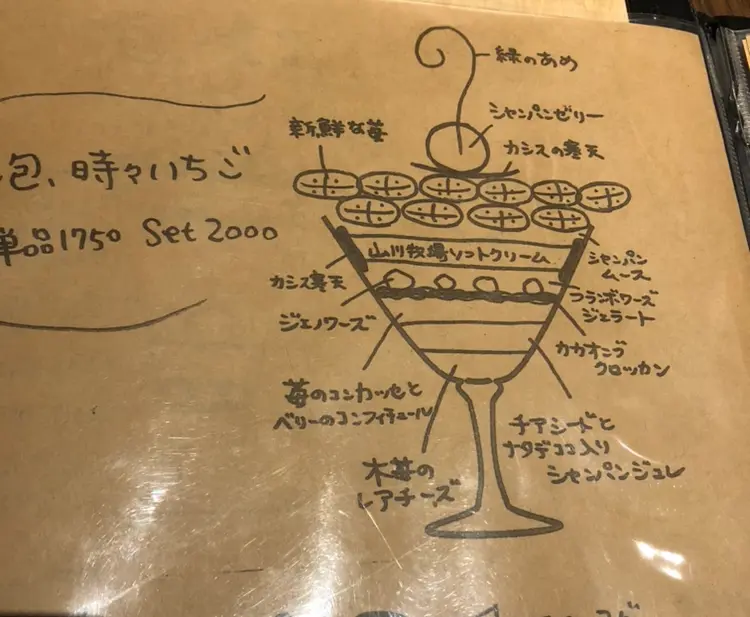 緑のあめ
シャンパンゼリー
新鮮な苺
カシスの寒天
包、時々いちご
単品1750 Set 2000
山川牧場ソフトクリーム
シャンパン
ムース
カシス寒天
フランボワーズ
ジェラート
ジェノワーズ
カカオニブ
クロッカン
苺のコンカッセと
ベリーのコンフィチュール
チアシードと
ナタデココ入り
シャンパンジュレ
木苺の
レアチーズ